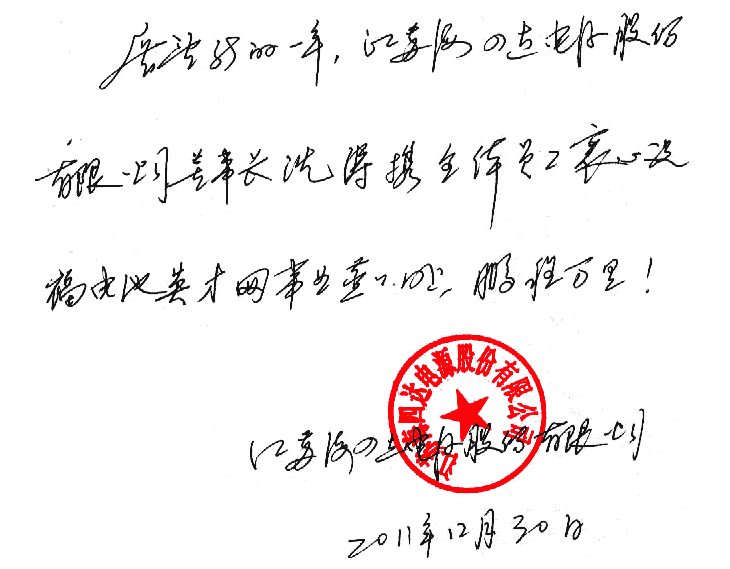 展望新的一年，江苏海四达电源股份
有限公司董事长沈涛携全体员工衷心祝
福电池英才网事业蒸蒸日上，鹏程万里！
江苏海四达电源股份有限公司
江苏海四达电源股份有限公司
2011年12月30日